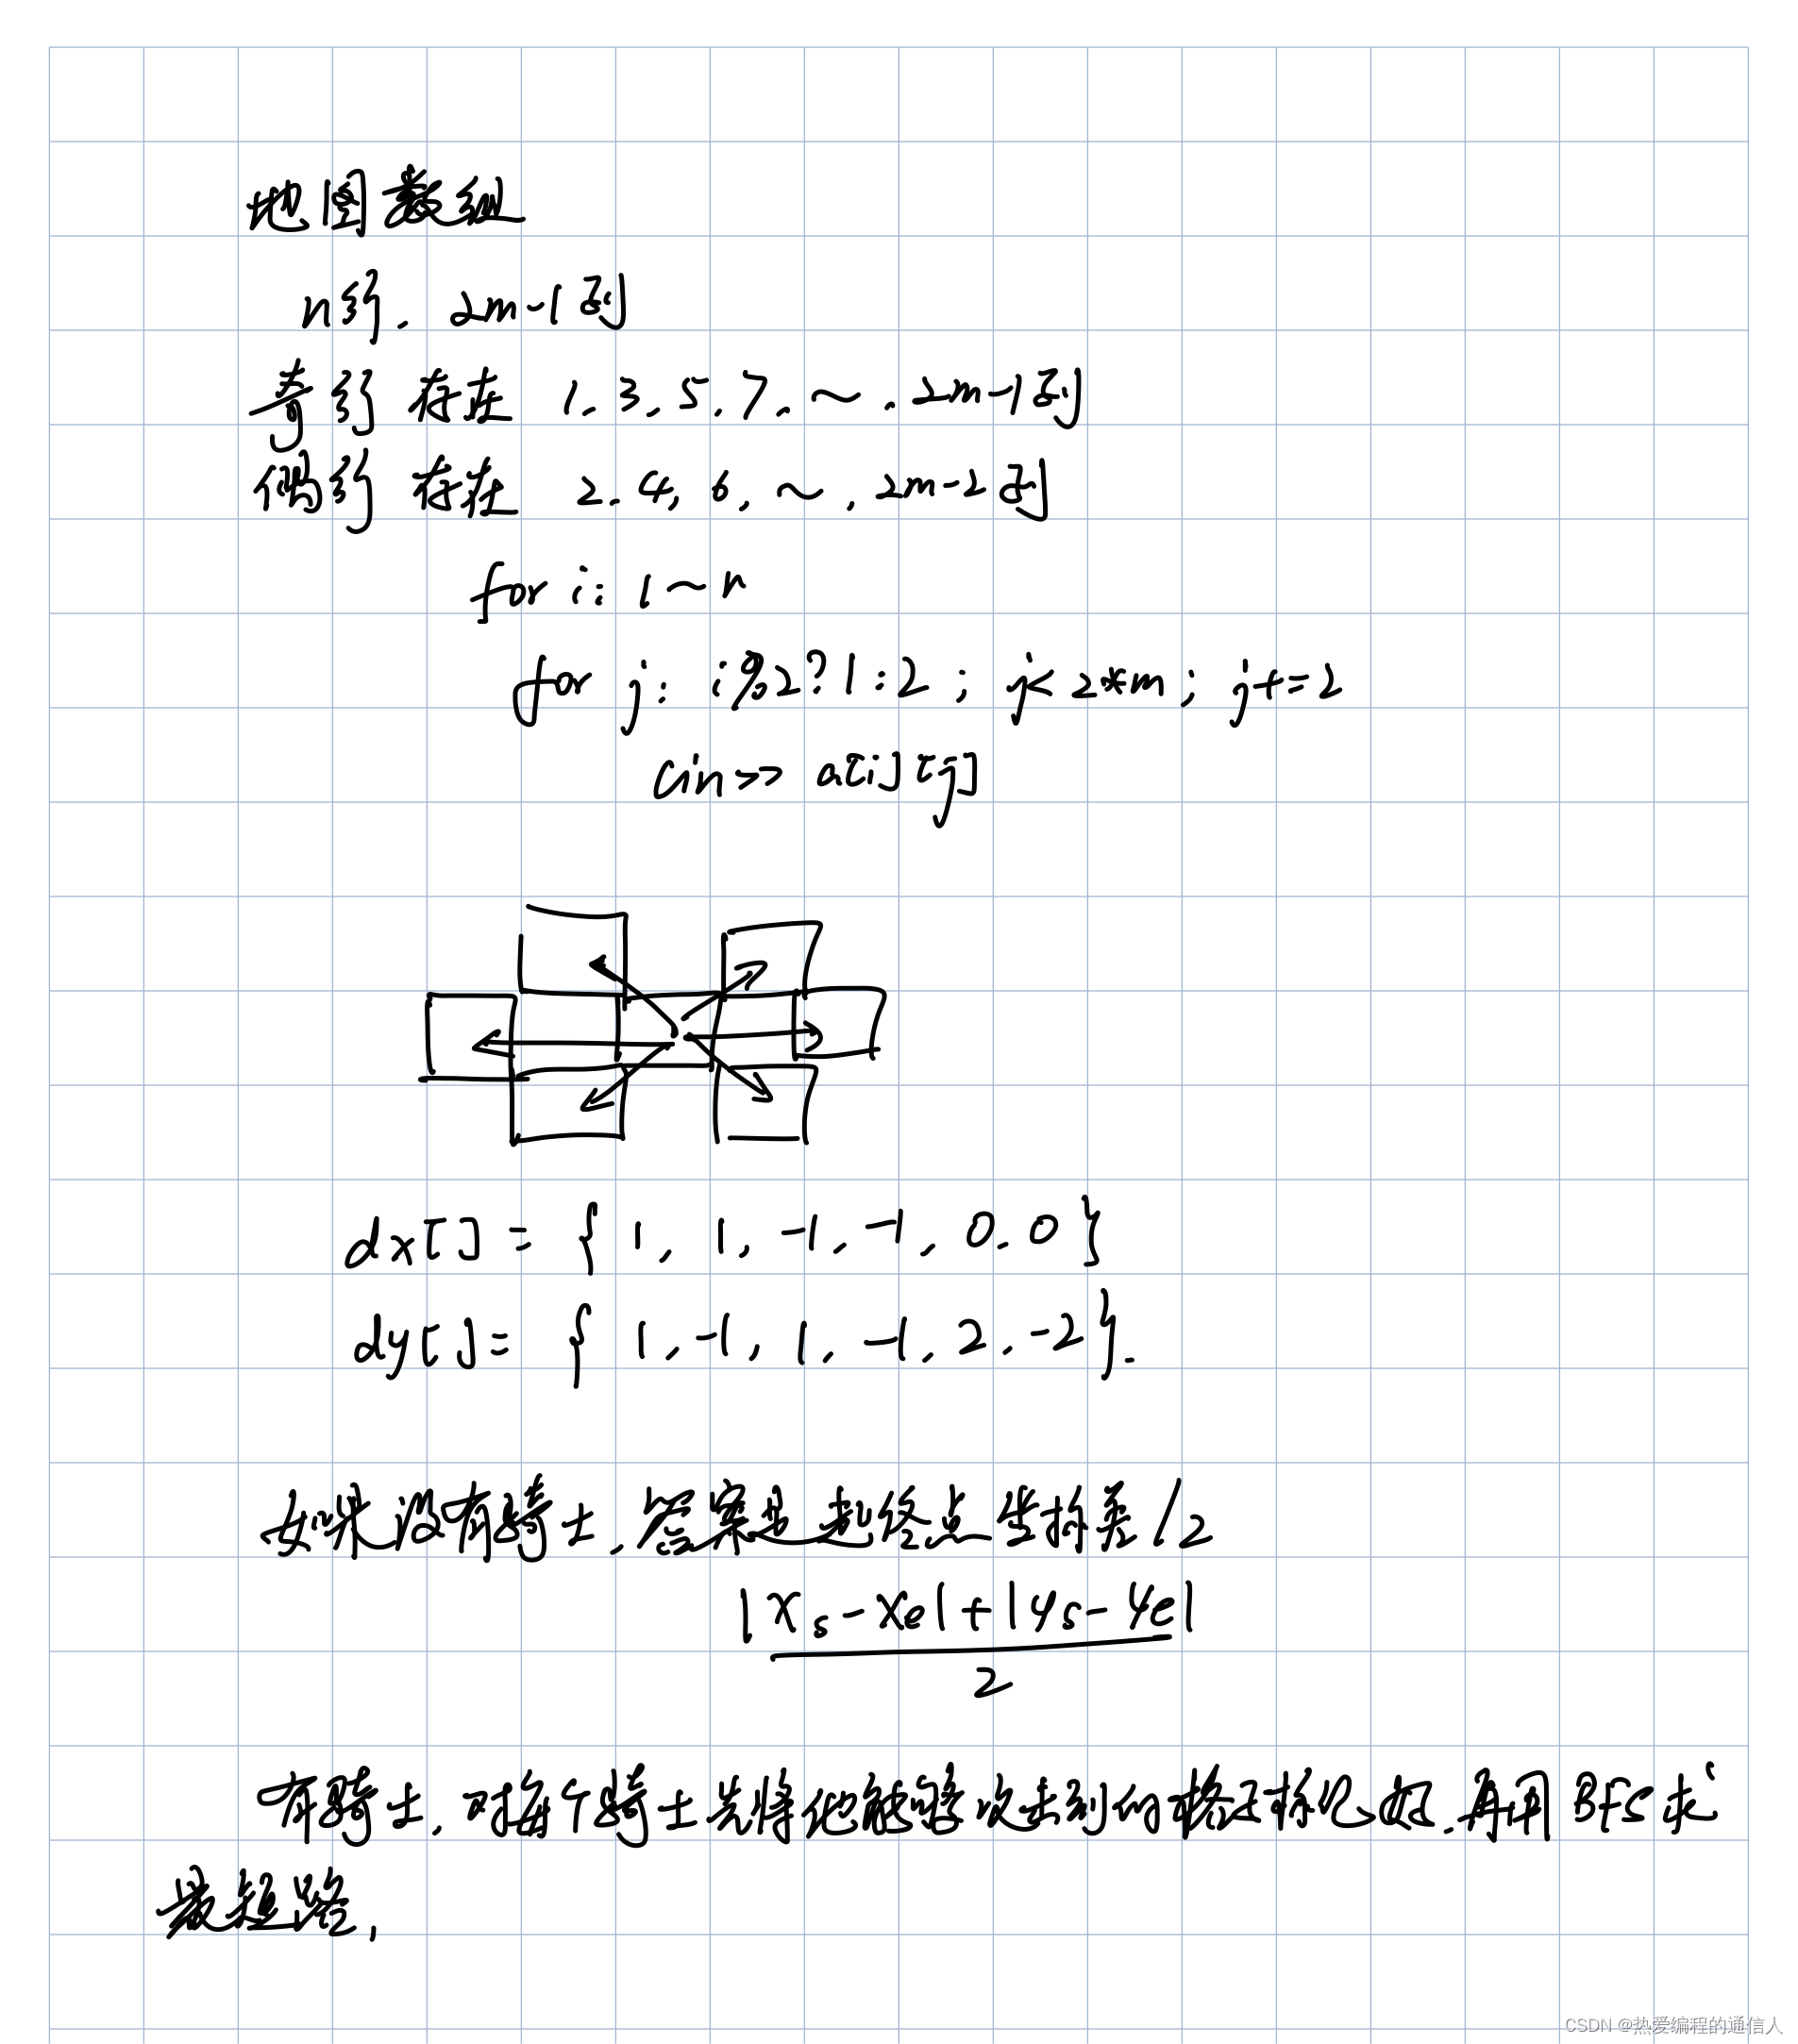 地图数组
n行. 2m-1列
奇行 存在 1.3.5.7.~.2m-1列
偶行 存在 2.4.6.~.2m-2列
for i: 1~n
for j: i%2?1:2; j<2*m; j+=2
cin>>a[i][j]
dx[]={1,1,-1,-1,0.0}
dy[]={1,-1,1,-1,2,-2}.
如果没有骑士,答案也就是坐标差/2
|xs-xe|+|ys-ye|
2
有骑士.对每个骑士先将他能够攻击到的格子标记数.再用BFS求
最短路,
CSDN @热爱编程的通信人